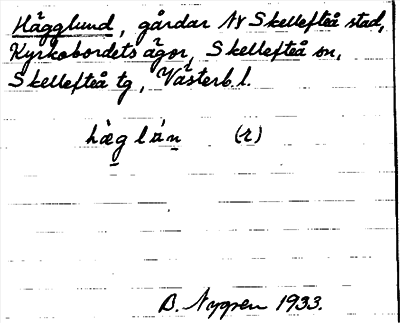 Hägglund, gårdar NV Skellefteå stad,
Kyrkobordets ägor, Skellefteå sn,
Skellefteå tg, Västerb. l.
hèglùn (r)
B. Nygren 1933.